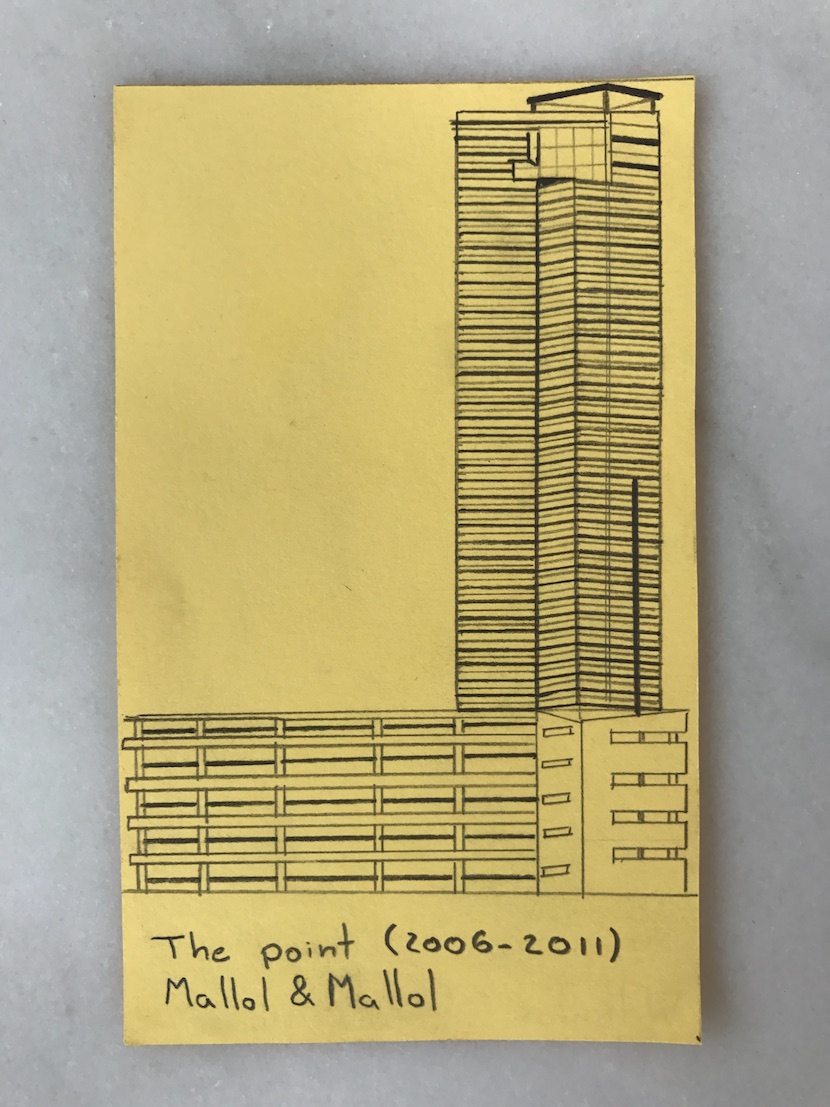 The point (2006-2011)
Mallol & Mallol